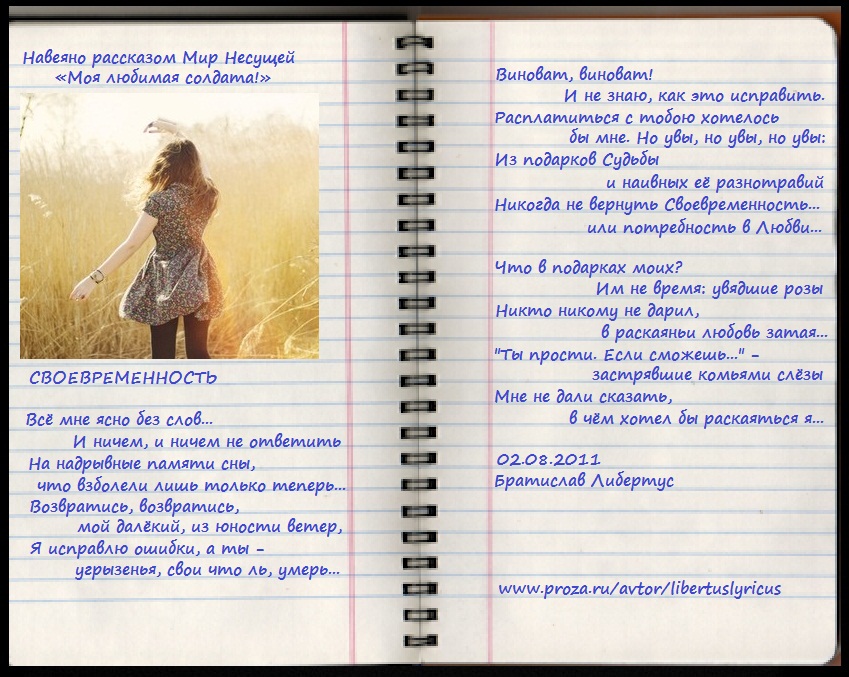 Навеяно рассказом Мир Несущей
«Моя любимая солдата!»
СВОЕВРЕМЕННОСТЬ
Всё мне ясно без слов...
И ничем, и ничем не ответить
На надрывные памяти сны,
что взболели лишь только теперь...
Возвратись, возвратись,
мой далёкий, из юности ветер,
Я исправлю ошибки, а ты –
угрызенья, свои что ль, умерь...
Виноват, виноват!
И не знаю, как это исправить.
Расплатиться с тобою хотелось
бы мне. Но увы, но увы, но увы:
Из подарков Судьбы
и наивных её разнотравий
Никогда не вернуть Своевременность...
или потребность в Любви...
Что в подарках моих?
Им не время: увядшие розы
Никто никому не дарил,
в раскаяньи любовь затая...
"Ты прости. Если сможешь..." –
застрявшие комьями слёзы
Мне не дали сказать,
в чём хотел бы раскаяться я...
02.08.2011
Братислав Либертус
www.proza.ru/avtor/libertuslyricus